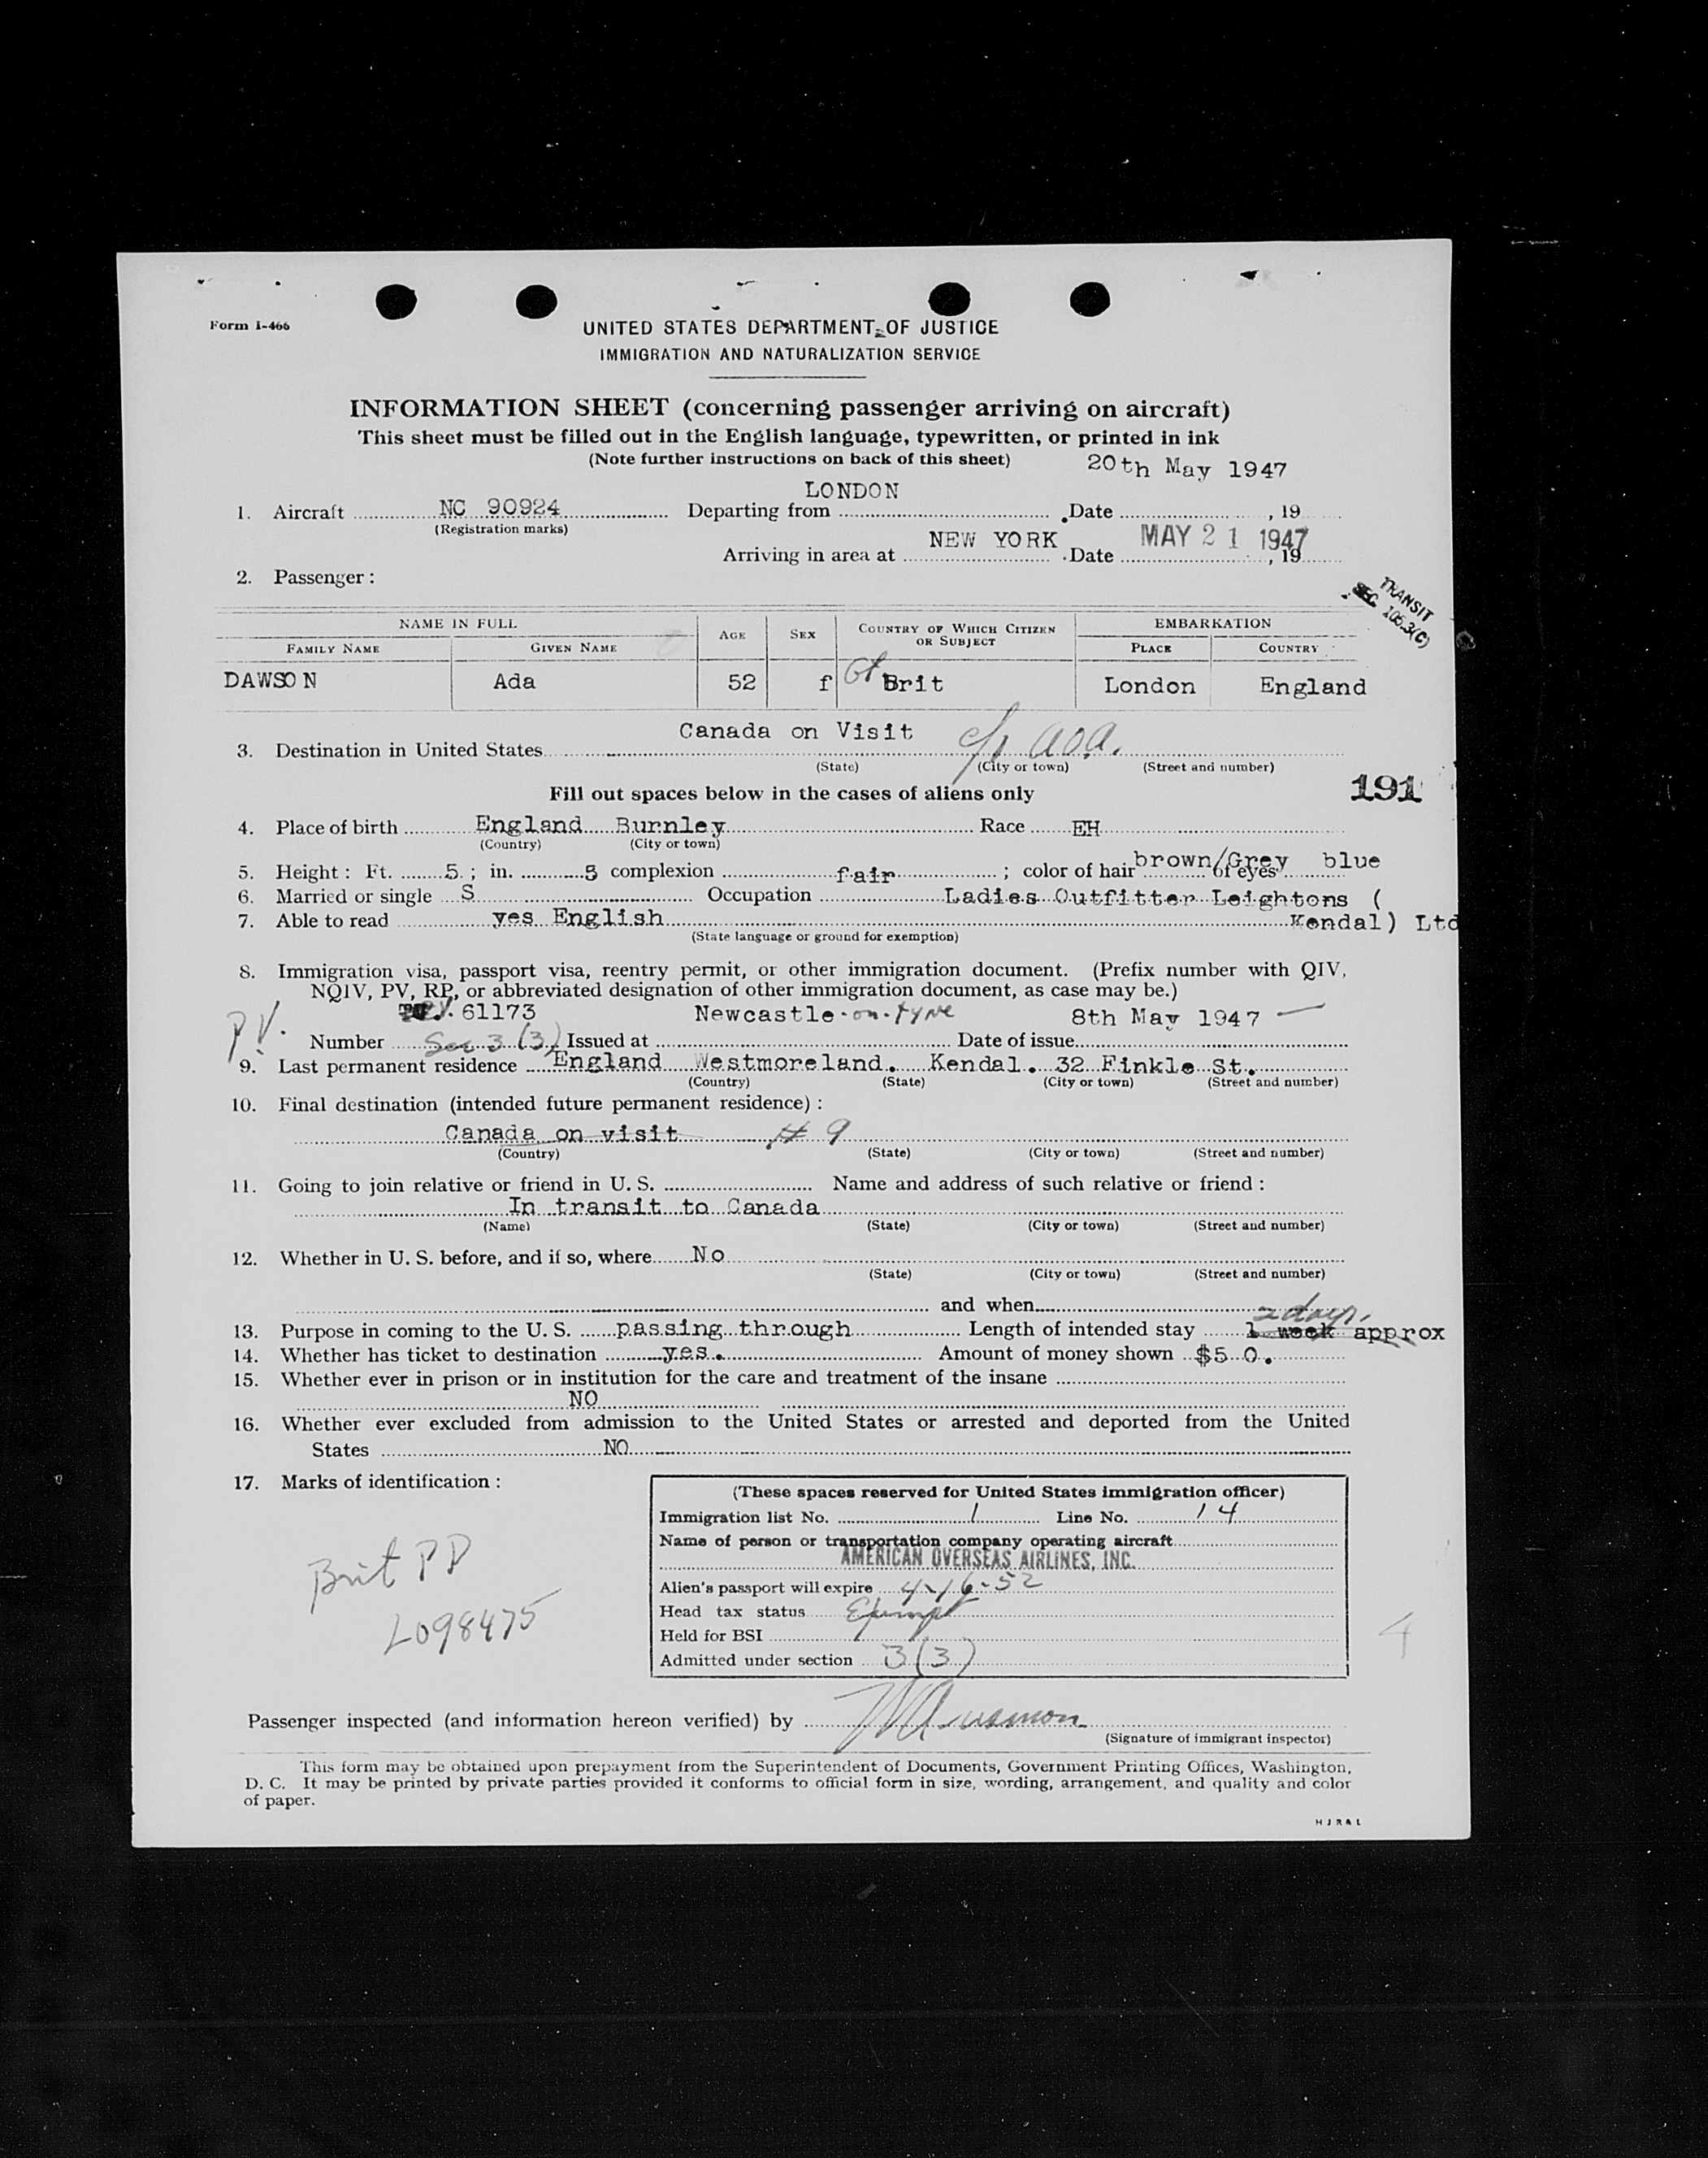 Form I-466
UNITED STATES DEPARTMENT OF JUSTICE
IMMIGRATION AND NATURALIZATION SERVICE
INFORMATION SHEET (concerning passenger arriving on aircraft)
This sheet must be filled out in the English language, typewritten, or printed in ink
(Note further instructions on back of this sheet)
20th May 1947
LONDON
1. Aircraft NC 90924 Departing from Date , 19
(Registration marks)
NEW YORK MAY 21 1947
Arriving in area at Date , 19
2. Passenger:
TRANSIT
SEC 105.3(C)
NAME IN FULL AGE SEX COUNTRY OF WHICH CITIZEN OR SUBJECT EMBARKATION
FAMILY NAME GIVEN NAME PLACE COUNTRY
DAWSON Ada 52 f Gt Brit London England
Canada on Visit c/o AOA.
3. Destination in United States
(State) (City or town) (Street and number)
191
Fill out spaces below in the cases of aliens only
4. Place of birth England Burnley Race EH
(Country) (City or town)
5. Height: Ft. 5; in. 5 complexion fair; color of hair brown/Grey of eyes blue
6. Married or single S Occupation Ladies Outfitter Leightons (
7. Able to read yes English Kendal) Ltd
(State language or ground for exemption)
8. Immigration visa, passport visa, reentry permit, or other immigration document. (Prefix number with QIV,
NQIV, PV, RP, or abbreviated designation of other immigration document, as case may be.)
P.V. 61173 Newcastle-on-tyne 8th May 1947
P.V. Number Sec 3 (3) Issued at Date of issue
9. Last permanent residence England Westmoreland. Kendal. 32 Finkle St.
(Country) (State) (City or town) (Street and number)
10. Final destination (intended future permanent residence):
Canada on visit # 9
(Country) (State) (City or town) (Street and number)
11. Going to join relative or friend in U. S. Name and address of such relative or friend:
In transit to Canada
(Name) (State) (City or town) (Street and number)
12. Whether in U. S. before, and if so, where No
(State) (City or town) (Street and number)
and when
2 days.
13. Purpose in coming to the U. S. passing through Length of intended stay 1 week approx
14. Whether has ticket to destination yes. Amount of money shown $50.
15. Whether ever in prison or in institution for the care and treatment of the insane
NO
16. Whether ever excluded from admission to the United States or arrested and deported from the United
States NO
17. Marks of identification:
Brit PP
L098475
(These spaces reserved for United States immigration officer)
Immigration list No. 1 Line No. 14
Name of person or transportation company operating aircraft
AMERICAN OVERSEAS AIRLINES, INC.
Alien's passport will expire 4-16-52
Head tax status Exempt
Held for BSI
Admitted under section 3(3)
4
Passenger inspected (and information hereon verified) by
(Signature of immigrant inspector)
This form may be obtained upon prepayment from the Superintendent of Documents, Government Printing Offices, Washington,
D. C. It may be printed by private parties provided it conforms to official form in size, wording, arrangement, and quality and color
of paper.